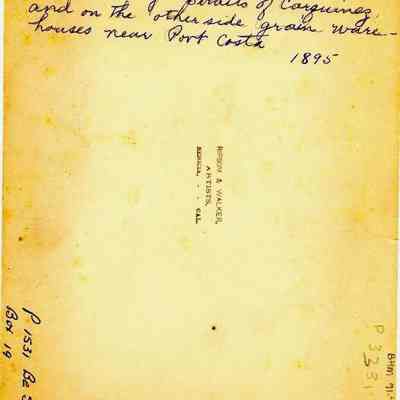 Straits of Carquinez,
and on the other side grain ware-
houses near Port Costa
1895
& WALKER,
ARTISTS,
BENICIA, - - CAL.
P 1531 Be
Box 19
P 3231
BHM 91-